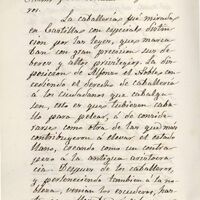 ros.
La caballeria fue mirada
en Castilla con especial distin-
cion por las leyes, que marca-
ban con gran precision sus de-
beres y altos privilegios. La dis-
posicion de Alfonso el Noble con-
cediendo el derecho de caballeria
a los ciudadanos que cabalga-
sen, esto es que tubiesen caba-
llo para pelear, ha de conside-
rarse como otra de las que mas
contribuyeron a elevar el estado
llano, creando como un contra
peso a la antigua aristocra-
cia. Despues de los caballeros,
y perteneciendo tambien a la no-
bleza, venian los escuderos,